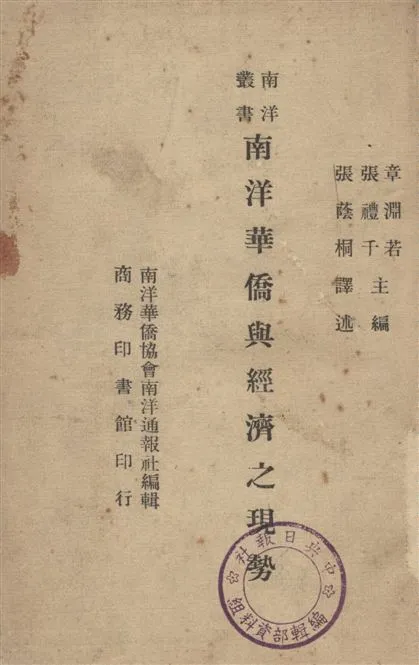 章淵若
張禮千
主編
張蔭桐譯述
南洋
叢書
南洋華僑與經濟之現勢
南洋華僑協會南洋通報社編輯
商務印書館印行
中央日報社
編輯部資料組